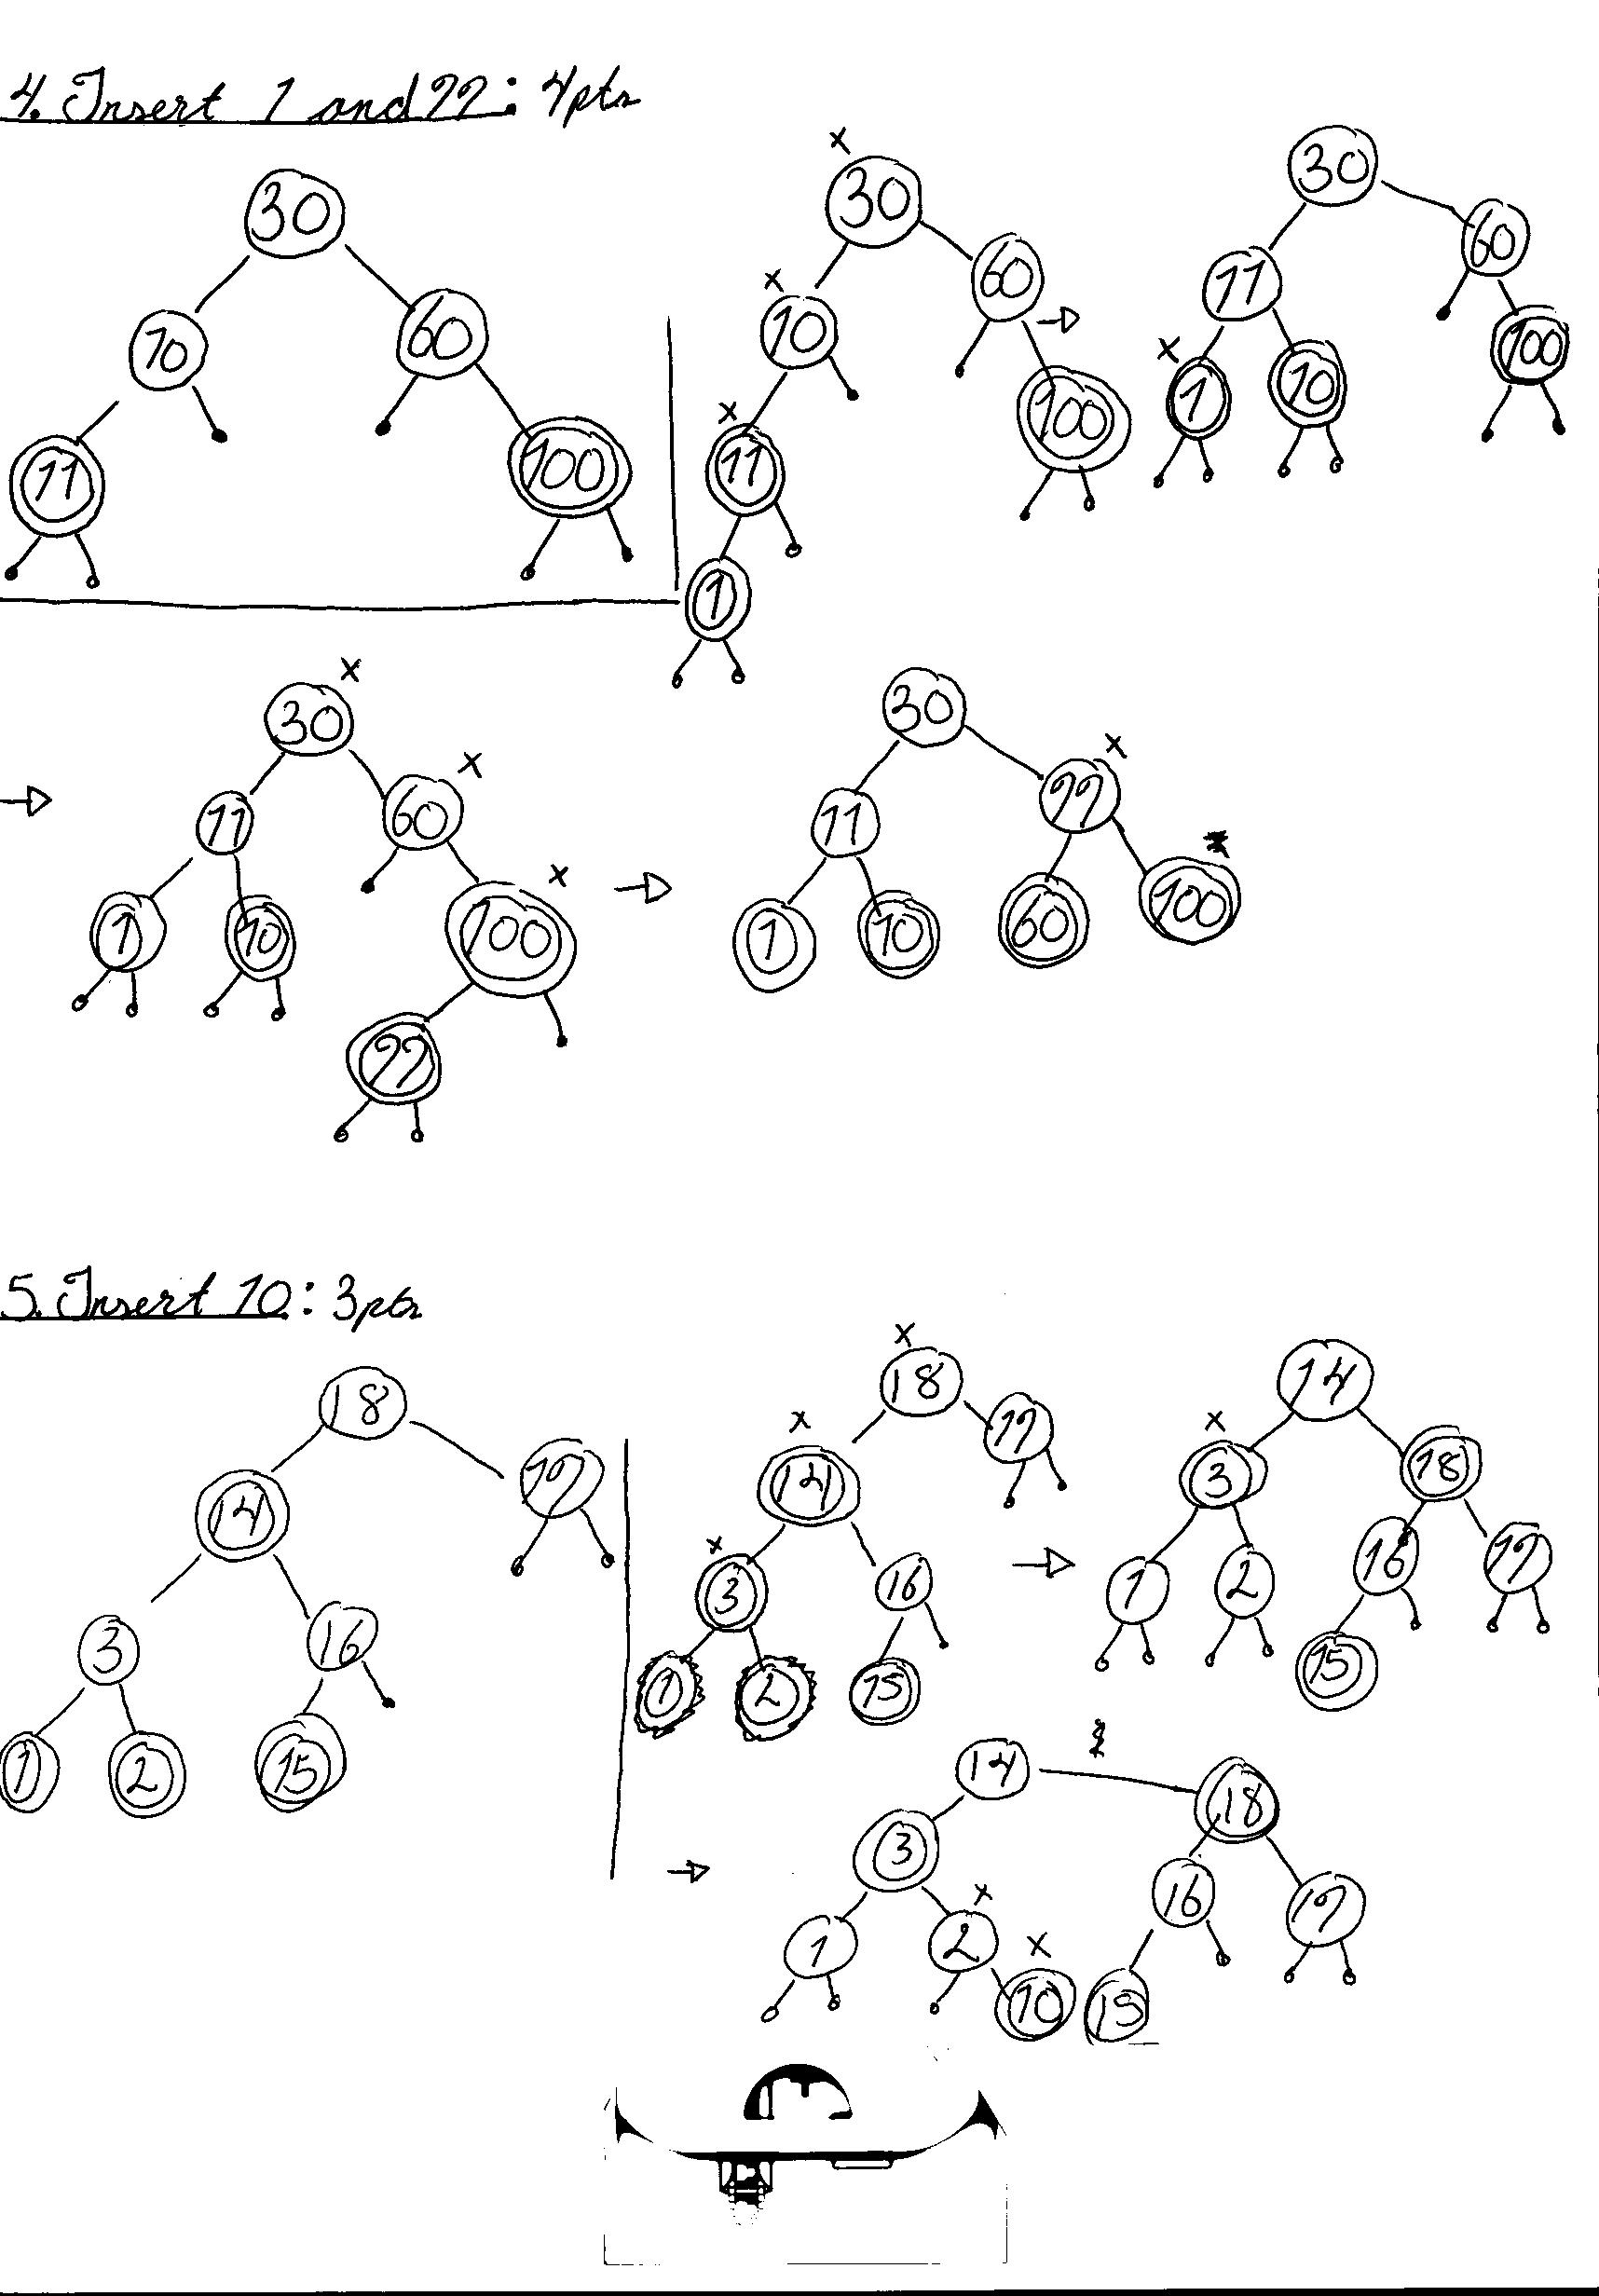 4. Insert 1 and 99: 4pts
30
10 60
11 100
x
30
x
10 60
x
11 100
1
→
30
11 60
x
1 10 100
→
x
30
x
11 60
x
1 10 100
99
→
30
x
11 99
1 10 60 100
5. Insert 10: 3pts
18
14 19
3 16
1 2 15
x
18
x
14 19
x
3 16
1 2 15
→
14
x
3 18
1 2 16 19
15
→
14
3 18
x
1 2 16 19
x
10 15